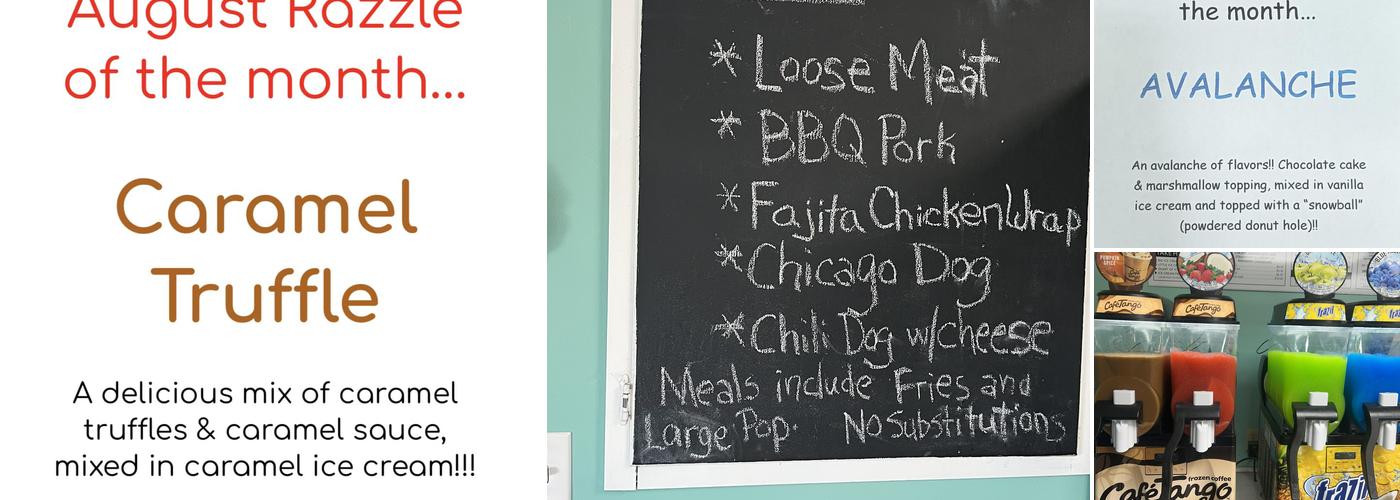 August Razzle
of the month...
Caramel
Truffle
A delicious mix of caramel
truffles & caramel sauce,
mixed in caramel ice cream!!!
* Loose Meat
* BBQ Pork
* Fajita Chicken Wrap
* Chicago Dog
* Chili Dog w/cheese
Meals include Fries and
Large Pop. No Substitutions
the month...
AVALANCHE
An avalanche of flavors!! Chocolate cake
& marshmallow topping, mixed in vanilla
ice cream and topped with a "snowball"
(powdered donut hole)!!
PUMPKIN
SPICE
CaféTango
CaféTango
frazil
frazil
frozen coffee
CaféTango
frazil